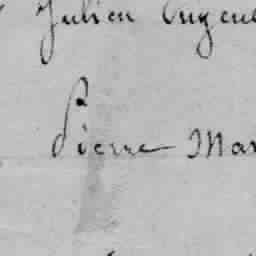 Julien Eugen
Pierre Mar